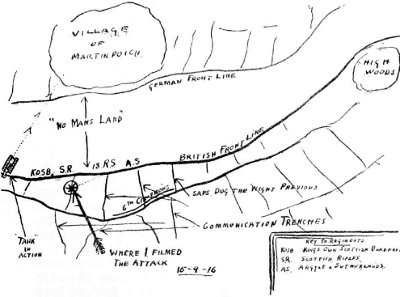 VILLAGE
OF
MARTINPUICH
HIGH
WOODS
GERMAN FRONT LINE
"NO MANS LAND"
KOSB. S.R. 18 RS A.S
BRITISH FRONT LINE
6TH CAMERONS
SAPS DUG THE NIGHT PREVIOUS
COMMUNICATION TRENCHES
TANK
IN
ACTION
WHERE I FILMED
THE ATTACK
15-9-16
KEY TO REGIMENTS
KOSB KINGS OWN SCOTTISH BORDERERS
SR. SCOTTISH RIFLES.
AS. ARGYLE & SUTHERLANDS.